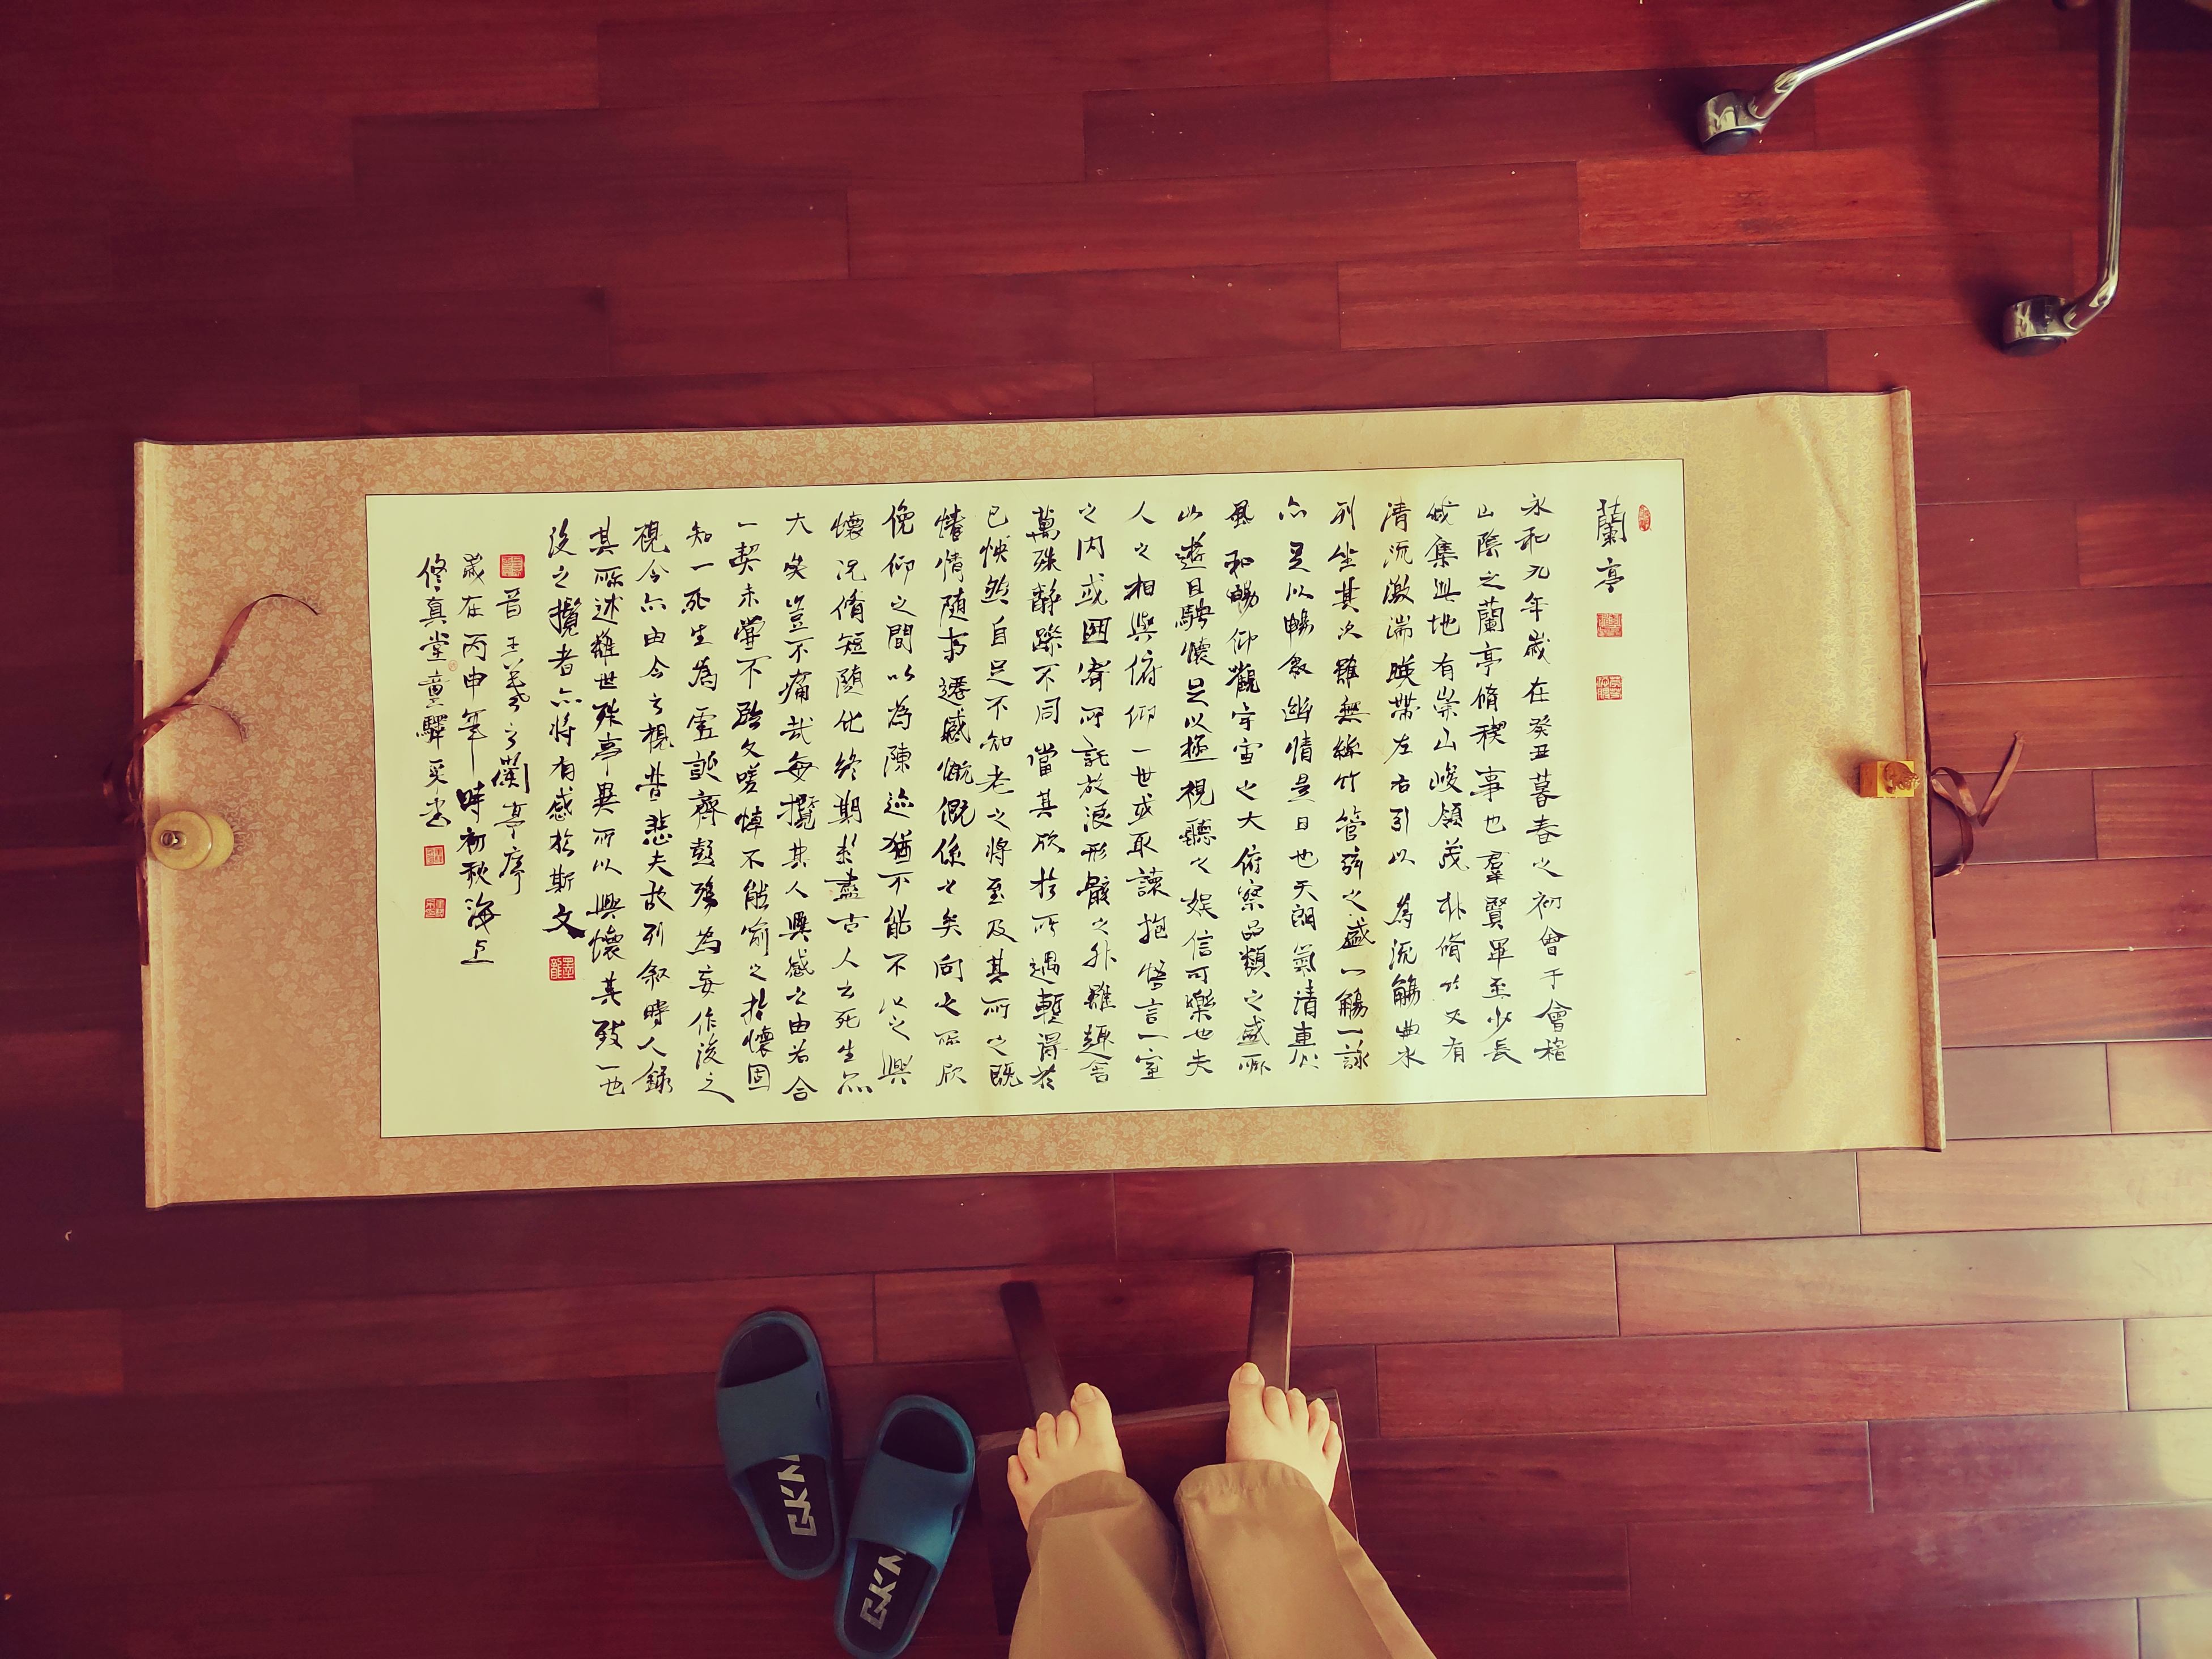 蘭亭
永和九年歲在癸丑暮春之初會于會稽
山陰之蘭亭脩稧事也羣賢畢至少長
咸集此地有崇山峻領茂林脩竹又有
清流激湍暎帶左右引以為流觴曲水
列坐其次雖無絲竹管弦之盛一觴一詠
亦足以暢敘幽情是日也天朗氣清惠
風和暢仰觀宇宙之大俯察品類之盛所
以遊目騁懷足以極視聽之娛信可樂也夫
人之相與俯仰一世或取諸抱悟言一室
之內或因寄所託放浪形骸之外雖趣舍
萬殊靜躁不同當其欣於所遇暫得於
己怏然自足不知老之將至及其所之既
惓情隨事遷感慨係之矣向之所欣
俛仰之間以為陳迹猶不能不以之興
懷況脩短隨化終期於盡古人云死生亦
大矣豈不痛哉每攬昔人興感之由若合
一契未嘗不臨文嗟悼不能喻之於懷固
知一死生為虛誕齊彭殤為妄作後之
視今亦由今之視昔悲夫故列敘時人錄
其所述雖世殊事異所以興懷其致一也
後之攬者亦將有感於斯文
晉王羲之蘭亭序
歲在丙申年時初秋海上
修真堂童驛采書
GKN
GKN